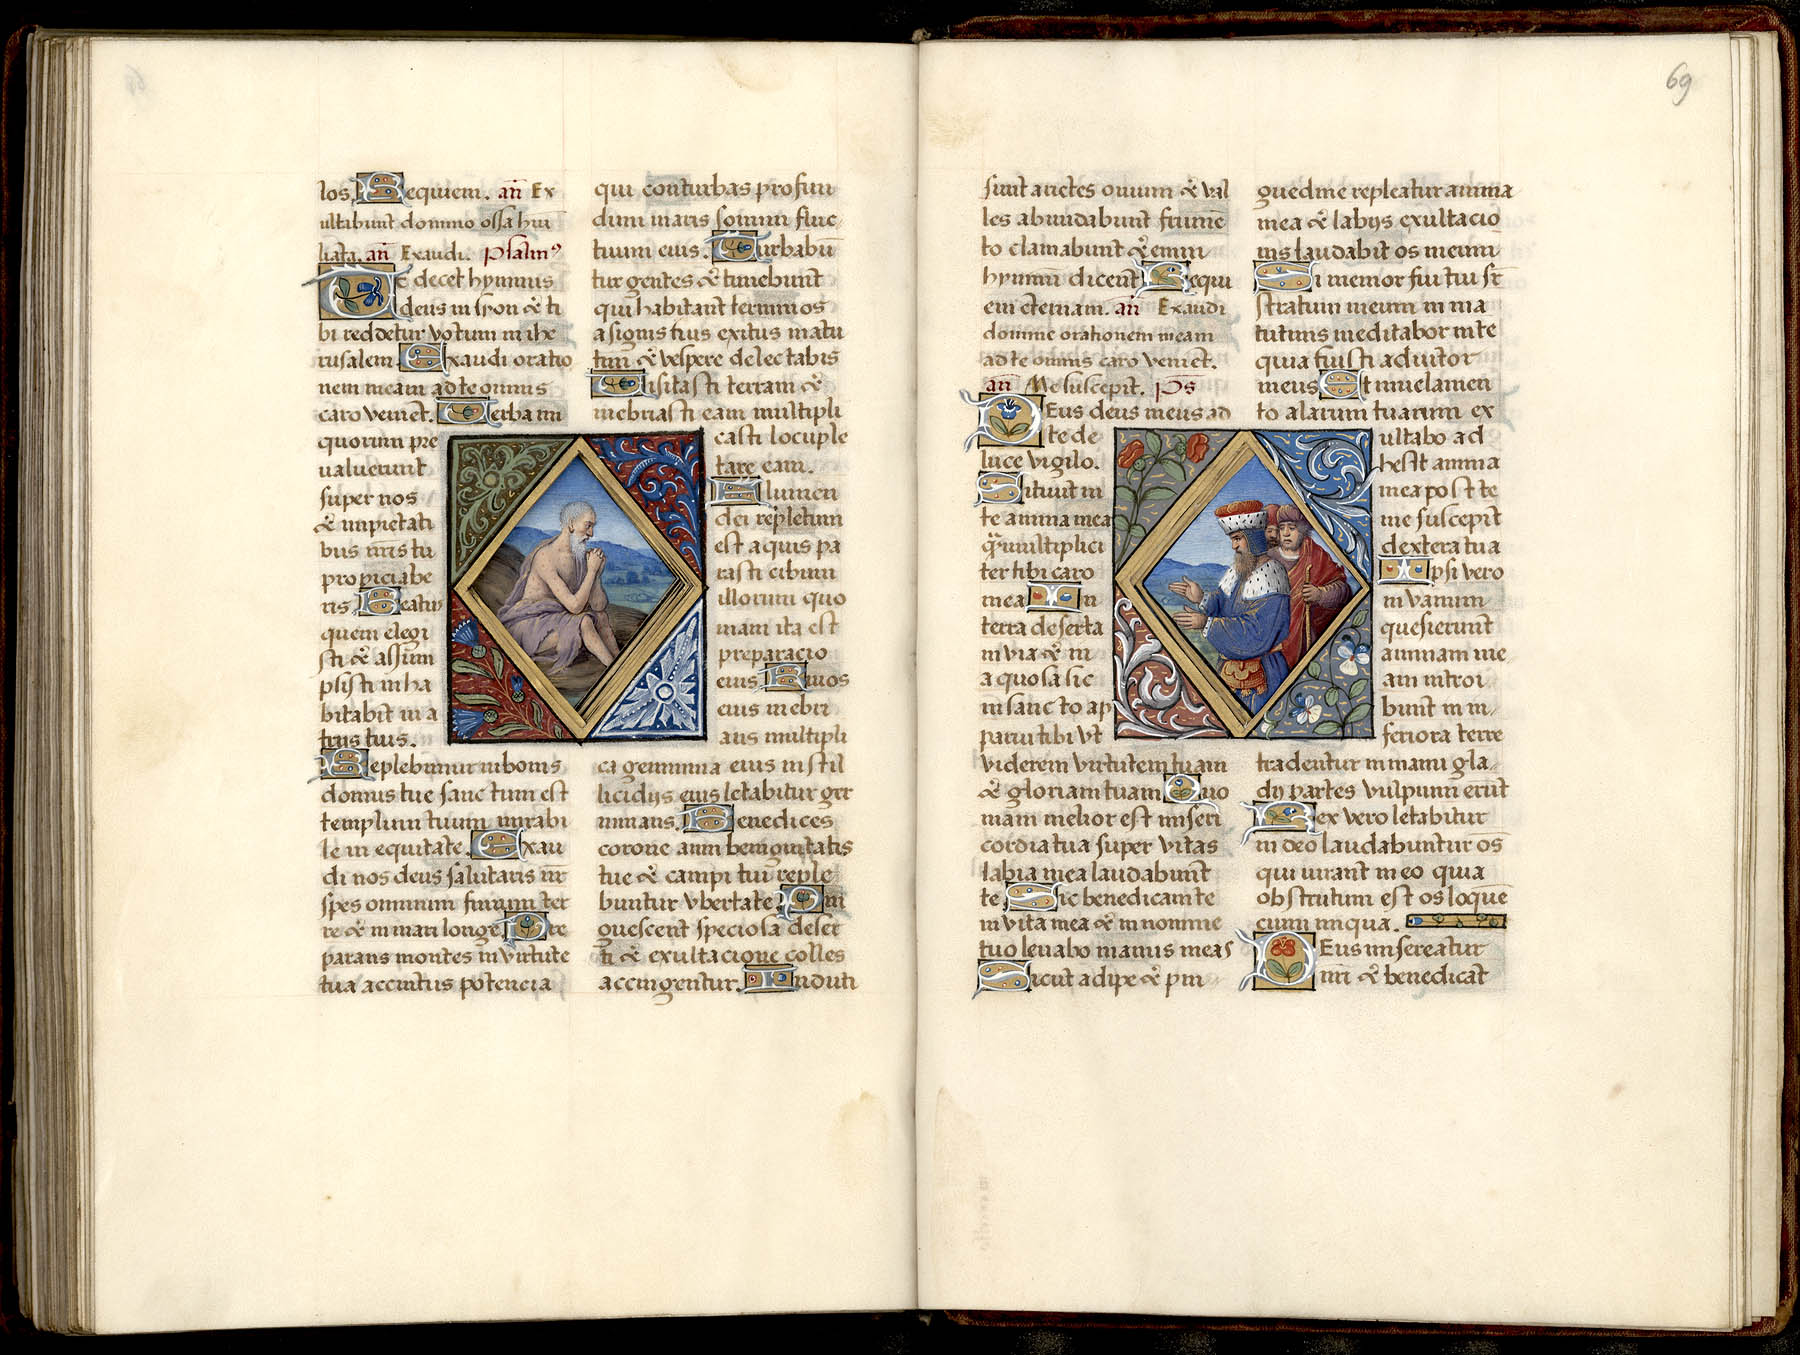 los. Requiem. an̄ Ex
ultabunt domino ossa hui
liata. an̄ Exaudi. Psalmꝰ
Te decet hymnus
deus in syon & ti
bi reddetur votum in ihe
rusalem Exaudi oratio
nem meam ad te omnis
caro veniet. Verba ini
quorum pre
ualuerunt
super nos
& impietati
bus nr̄is tu
propiciabe
ris Beatus
quem elegi
sti & assum
psisti inha
bitabit in a
trijs tuis.
Replebimur in bonis
domus tue sanctum est
templum tuum mirabi
le in equitate. Exau
di nos deus salutaris nr̄
spes omnium finium ter
re & in mari longe. Pre
parans montes in virtute
tua accintus potencia
qui conturbas profun
dum maris sonum fluc
tuum eius. Turbabū
tur gentes & timebunt
qui habitant terminos
a signis tuis exitus matu
tini & vespere delectabis
Visitasti terram &
inebriasti eam multipli
casti locuple
tare eam.
Flumen
dei repletum
est aquis pa
rasti cibum
illorum quo
niam ita est
preparacio
eius Riuos
eius inebri
ans multipli
ca genimina eius in stil
licidijs eius letabitur ger
minans. Benedices
corone anni benignitatis
tue & campi tui reple
buntur vbertate. Pin
guescent speciosa deser
ti & exultacione colles
accingentur. Induti
69
sunt arietes ouium & val
les abundabunt frumē
to clamabunt & enim
hymnū dicent Requi
em eternam. an̄ Exaudi
domine orationem meam
ad te omnis caro veniet.
an̄ Me suscepit. p̄s
Deus deus meus ad
te de
luce vigilo.
Sitiuit in
te anima mea
q̄ multiplici
ter tibi caro
mea In
terra deserta
inuia & in
aquosa sic
in sancto ap
parui tibi vt
viderem virtutem tuam
& gloriam tuam Quo
niam melior est miseri
cordia tua super vitas
labia mea laudabunt
te Sic benedicam te
in vita mea & in nomine
tuo leuabo manus meas
Sicut adipe & pin
guedine repleatur anima
mea & labijs exultacio
nis laudabit os meum
Si memor fui tui sr̄
stratum meum in ma
tutinis meditabor in te
quia fuisti adiutor
meus Et in uelamen
to alarum tuarum ex
ultabo ad
hesit anima
mea post te
me suscepit
dextera tua
Ipsi vero
in vanum
quesierunt
animam me
am introi
bunt in in
feriora terre
tradentur in manu gla
dij partes vulpium erūt
Rex vero letabitur
in deo laudabuntur ōs
qui iurant in eo quia
obstrutum est os loquē
cium iniqua.
Deus misereatur
nr̄i & benedicat